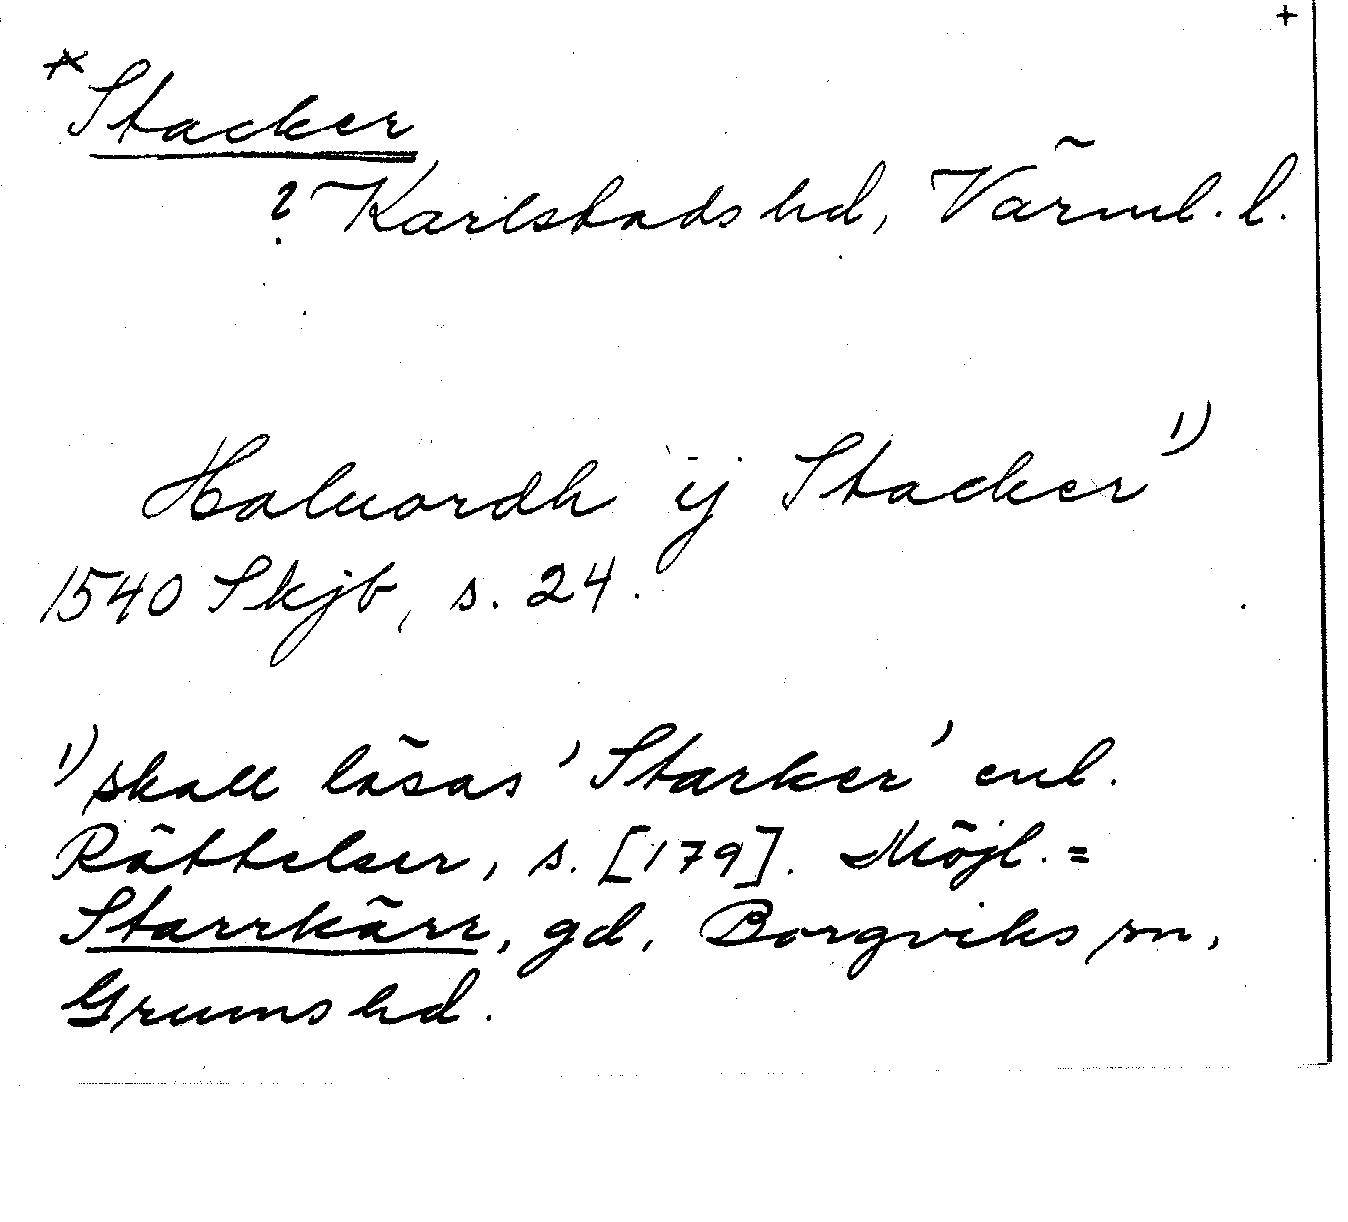 +
*Stacker
? Karlstads hd, Värml. l.
Haluordh ij Stacker 1)
1540 Skjb, s. 24.
1) skall läsas 'Starker' enl.
Rättelser, s. [179]. Möjl. =
Starrkärr, gd, Borgviks sn,
Grums hd.